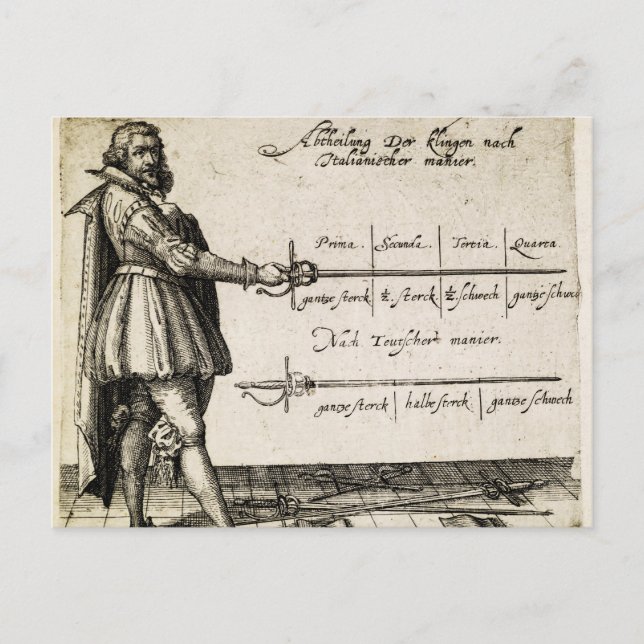 Abtheilung Der klingen nach
Italianischer manier.
Prima. Secunda. Tertia. Quarta.
gantze sterck ½. sterck. ½. schwech gantze schwec
Nach Teutscher manier.
gantze sterck halbe sterck. gantze schwech